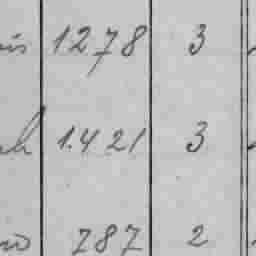 1278 3
1.421 3
787 2